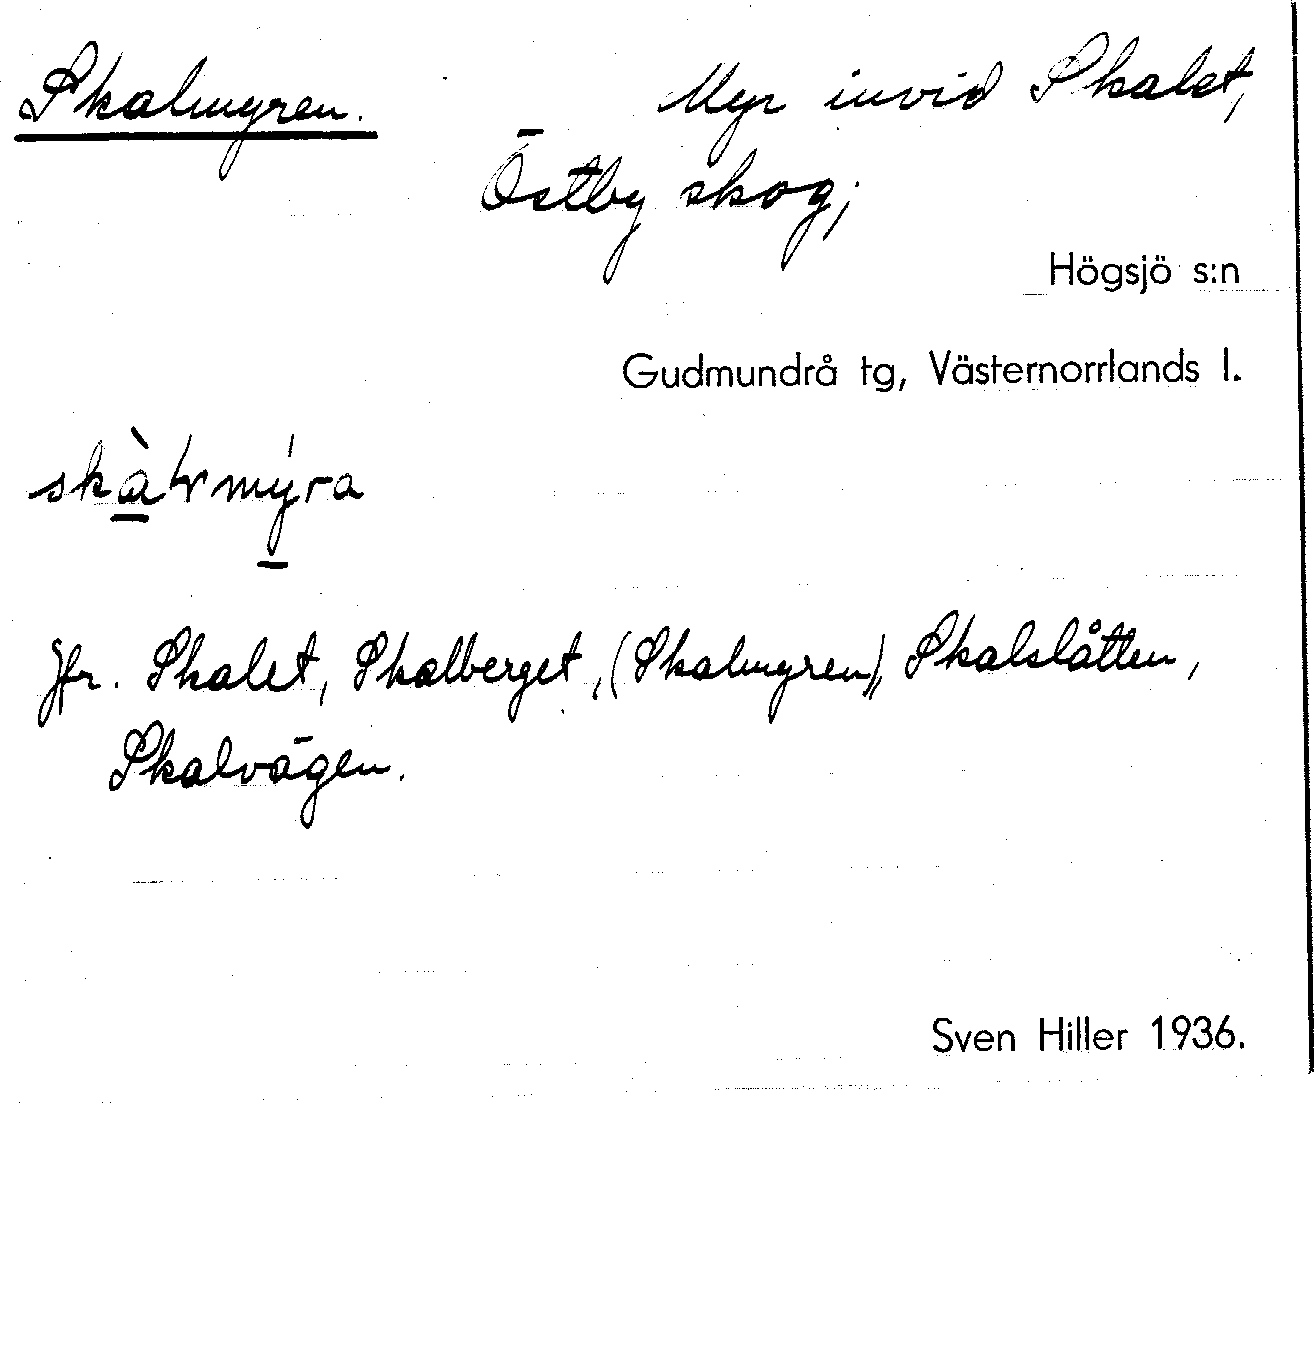 Skalmyren. Myr invid Skalet,
Östby skog;
Högsjö s:n
Gudmundrå tg, Västernorrlands l.
Jfr. Skalet, Skalberget, (Skalmyren), Skalslåtten,
Skalvägen.
Sven Hiller 1936.